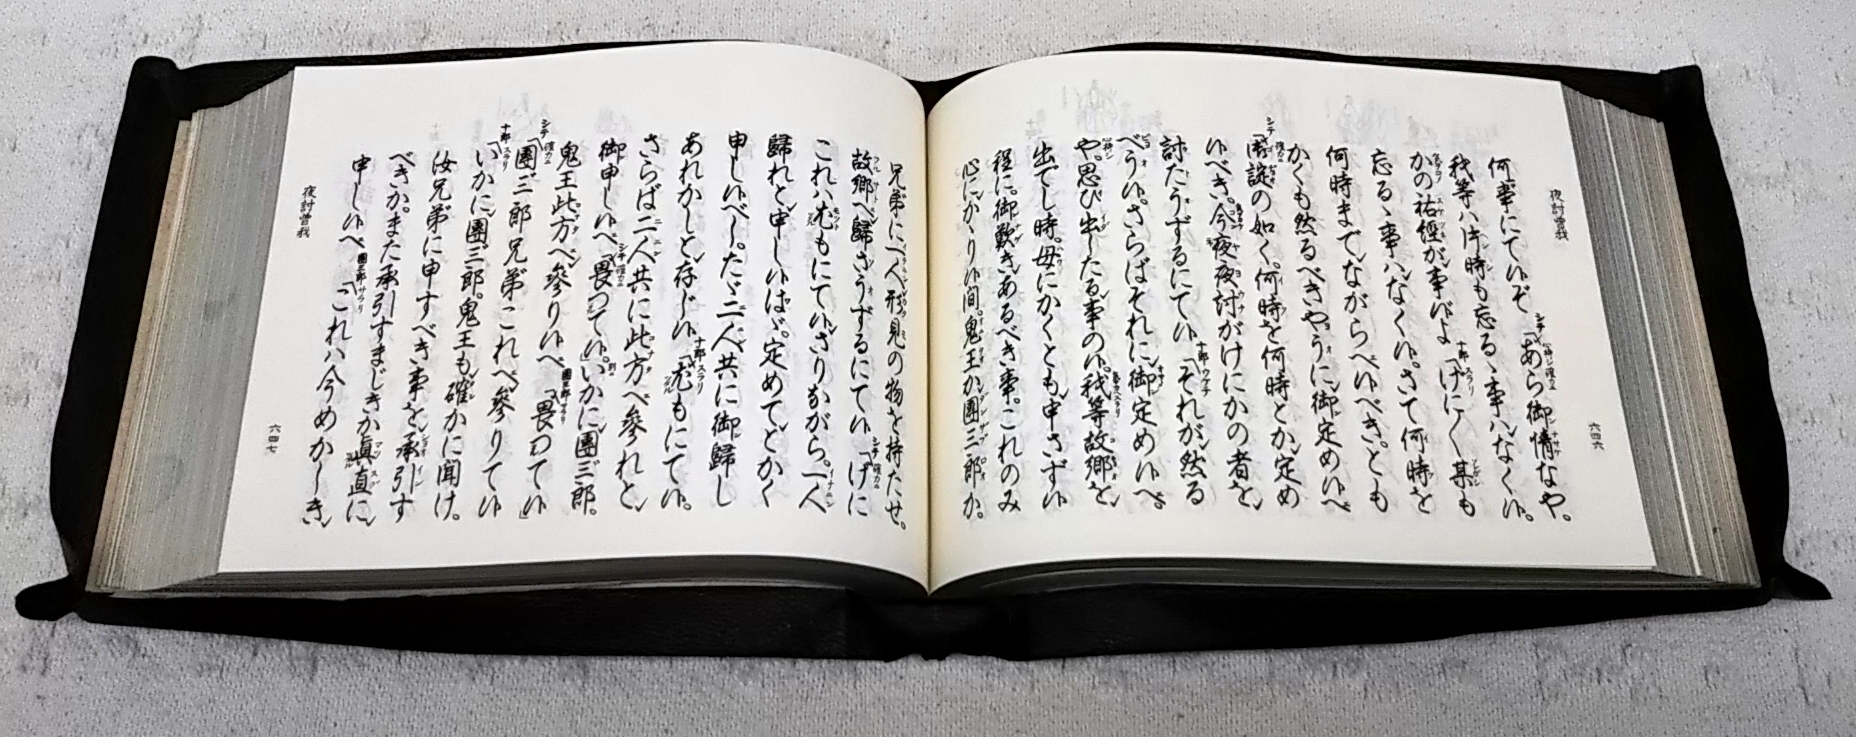 夜討曽我
六四六
何事にて候ぞ シテ「あら御情なや。
我等ハ片時も忘るゝ事ハなく候。
かの祐經が事候よ 十郎「げに〱某も
忘るゝ事ハなく候。さて何時を
何時までながらへ候べき。とも
かくも然るべきやうに御定め候へ
シテ「御諚の如く。何時を何時とか定め
候べき。今夜夜討がけにかの者を
討たうずるにて候 十郎「それが然る
べう候。さらばそれに御定め候へ。
や。思ひ出したる事の候。我等故郷を
出でし時。母にかくとも申さず候
程に。御歎きあるべき事。これのみ
心にかゝり候間。鬼王か團三郎か。
兄弟に一人形見の物を持たせ。
故郷へ歸さうずるにて候 シテ「げに
これハ尤もにて候さりながら。一人
歸れと申し候はゞ。定めてとかく
申し候べし。たゞ二人共に御歸し
あれかしと存じ候 十郎「尤もにて候。
さらば二人共に此方へ參れと
御申し候へ シテ「畏つて候。いかに團三郎。
鬼王此方へ參り候へ 團三郎「畏つて候」
シテ「團三郎兄弟これへ參りて候
十郎「いかに團三郎。鬼王も確かに聞け。
汝兄弟に申すべき事を承引す
べきか。また承引すまじきか眞直に
申し候へ 團三郎「これハ今めかしき
夜討曽我
六四七